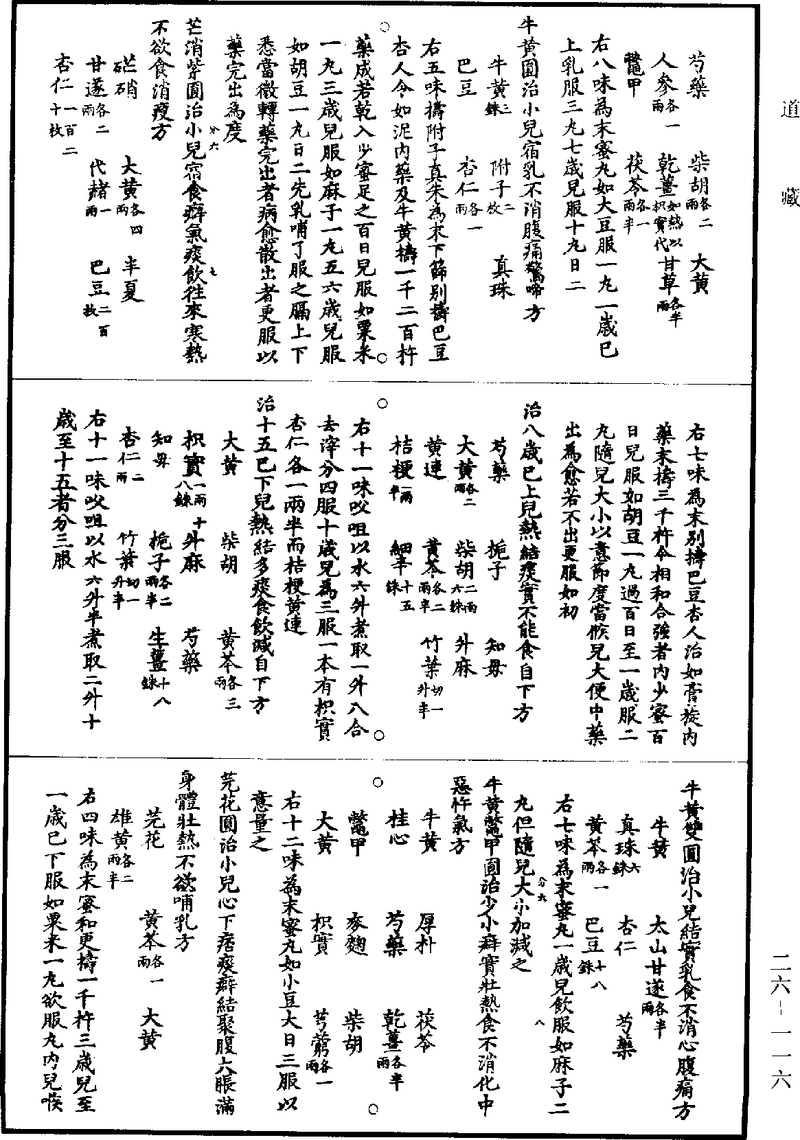 道藏
芍藥 柴胡各二兩 大黃
人參各一兩 乾薑如熱以枳實代 甘草各半兩
鼈甲 茯苓各一兩半
右八味為末蜜丸如大豆服一丸一歲已
上乳服三丸七歲兒服十丸日二
牛黃圓治小兒宿乳不消腹痛驚啼方
牛黃三銖 附子二枚 真珠
巴豆 杏仁各一兩
右五味擣附子真朱為末下篩別擣巴豆
杏人令如泥內藥及牛黃擣一千二百杵
藥成若乾入少蜜足之百日兒服如粟米
一丸三歲兒服如麻子一丸五六歲兒服
如胡豆一丸日二先乳哺了服之膈上下
悉當微轉藥完出者病愈散出者更服以
藥完出為度
芒消紫圓治小兒宿食癖氣痰飲往來寒熱
不欲食消瘦方
芒硝 大黃各四兩 半夏
甘遂各二兩 代赭一兩 巴豆二百枚
杏仁一百二十枚
右七味為末別擣巴豆杏人治如膏旋內
藥末擣三千杵令相和合強者內少蜜百
日兒服如胡豆一丸過百日至一歲服二
丸隨兒大小以意節度當候兒大便中藥
出為愈若不出更服如初
治八歲已上兒熱結痰實不能食自下方
芍藥 梔子 知毋
大黃各二兩 柴胡二兩六銖 升麻
黃連 黃芩各二兩半 竹葉切一升半
桔梗一兩半 細辛十五銖
右十一味㕮咀以水六升煮取一升八合
去滓分四服十歲兒為三服一本有枳實
杏仁各一兩半而桔梗黃連
治十五已下兒熱結多痰食飲減自下方
大黃 柴胡 黃芩各三兩
枳實一兩十八銖 升麻 芍藥
知毋 梔子各二兩半 生薑十八銖
杏仁二兩 竹葉切一升半
右十一味㕮咀以水六升半煮取二升十
歲至十五者分三服
牛黃雙圓治小兒結實乳食不消心腹痛方
牛黃 太山甘遂各半兩
真珠六銖 杏仁 芍藥
黃芩各一兩 巴豆十八銖
右七味為末蜜丸一歲兒飲服如麻子二
丸但隨兒大小加減之
牛黃鼈甲圓治少小癖實壯熱食不消化中
惡忤氣方
牛黃 厚朴 茯苓
桂心 芍藥 乾薑各半兩
鼈甲 麥麴 柴胡
大黃 枳實 芎藭各一兩
右十二味為末蜜丸如小豆大日三服以
意量之
芫花圓治小兒心下痞痰癖結聚腹大脹滿
身體壯熱不欲哺乳方
芫花 黃芩各一兩 大黃
雄黃各二兩半
右四味為末蜜和更擣一千杵三歲兒至
一歲已下服如粟米一丸欲服丸內兒喉
二六-一一六